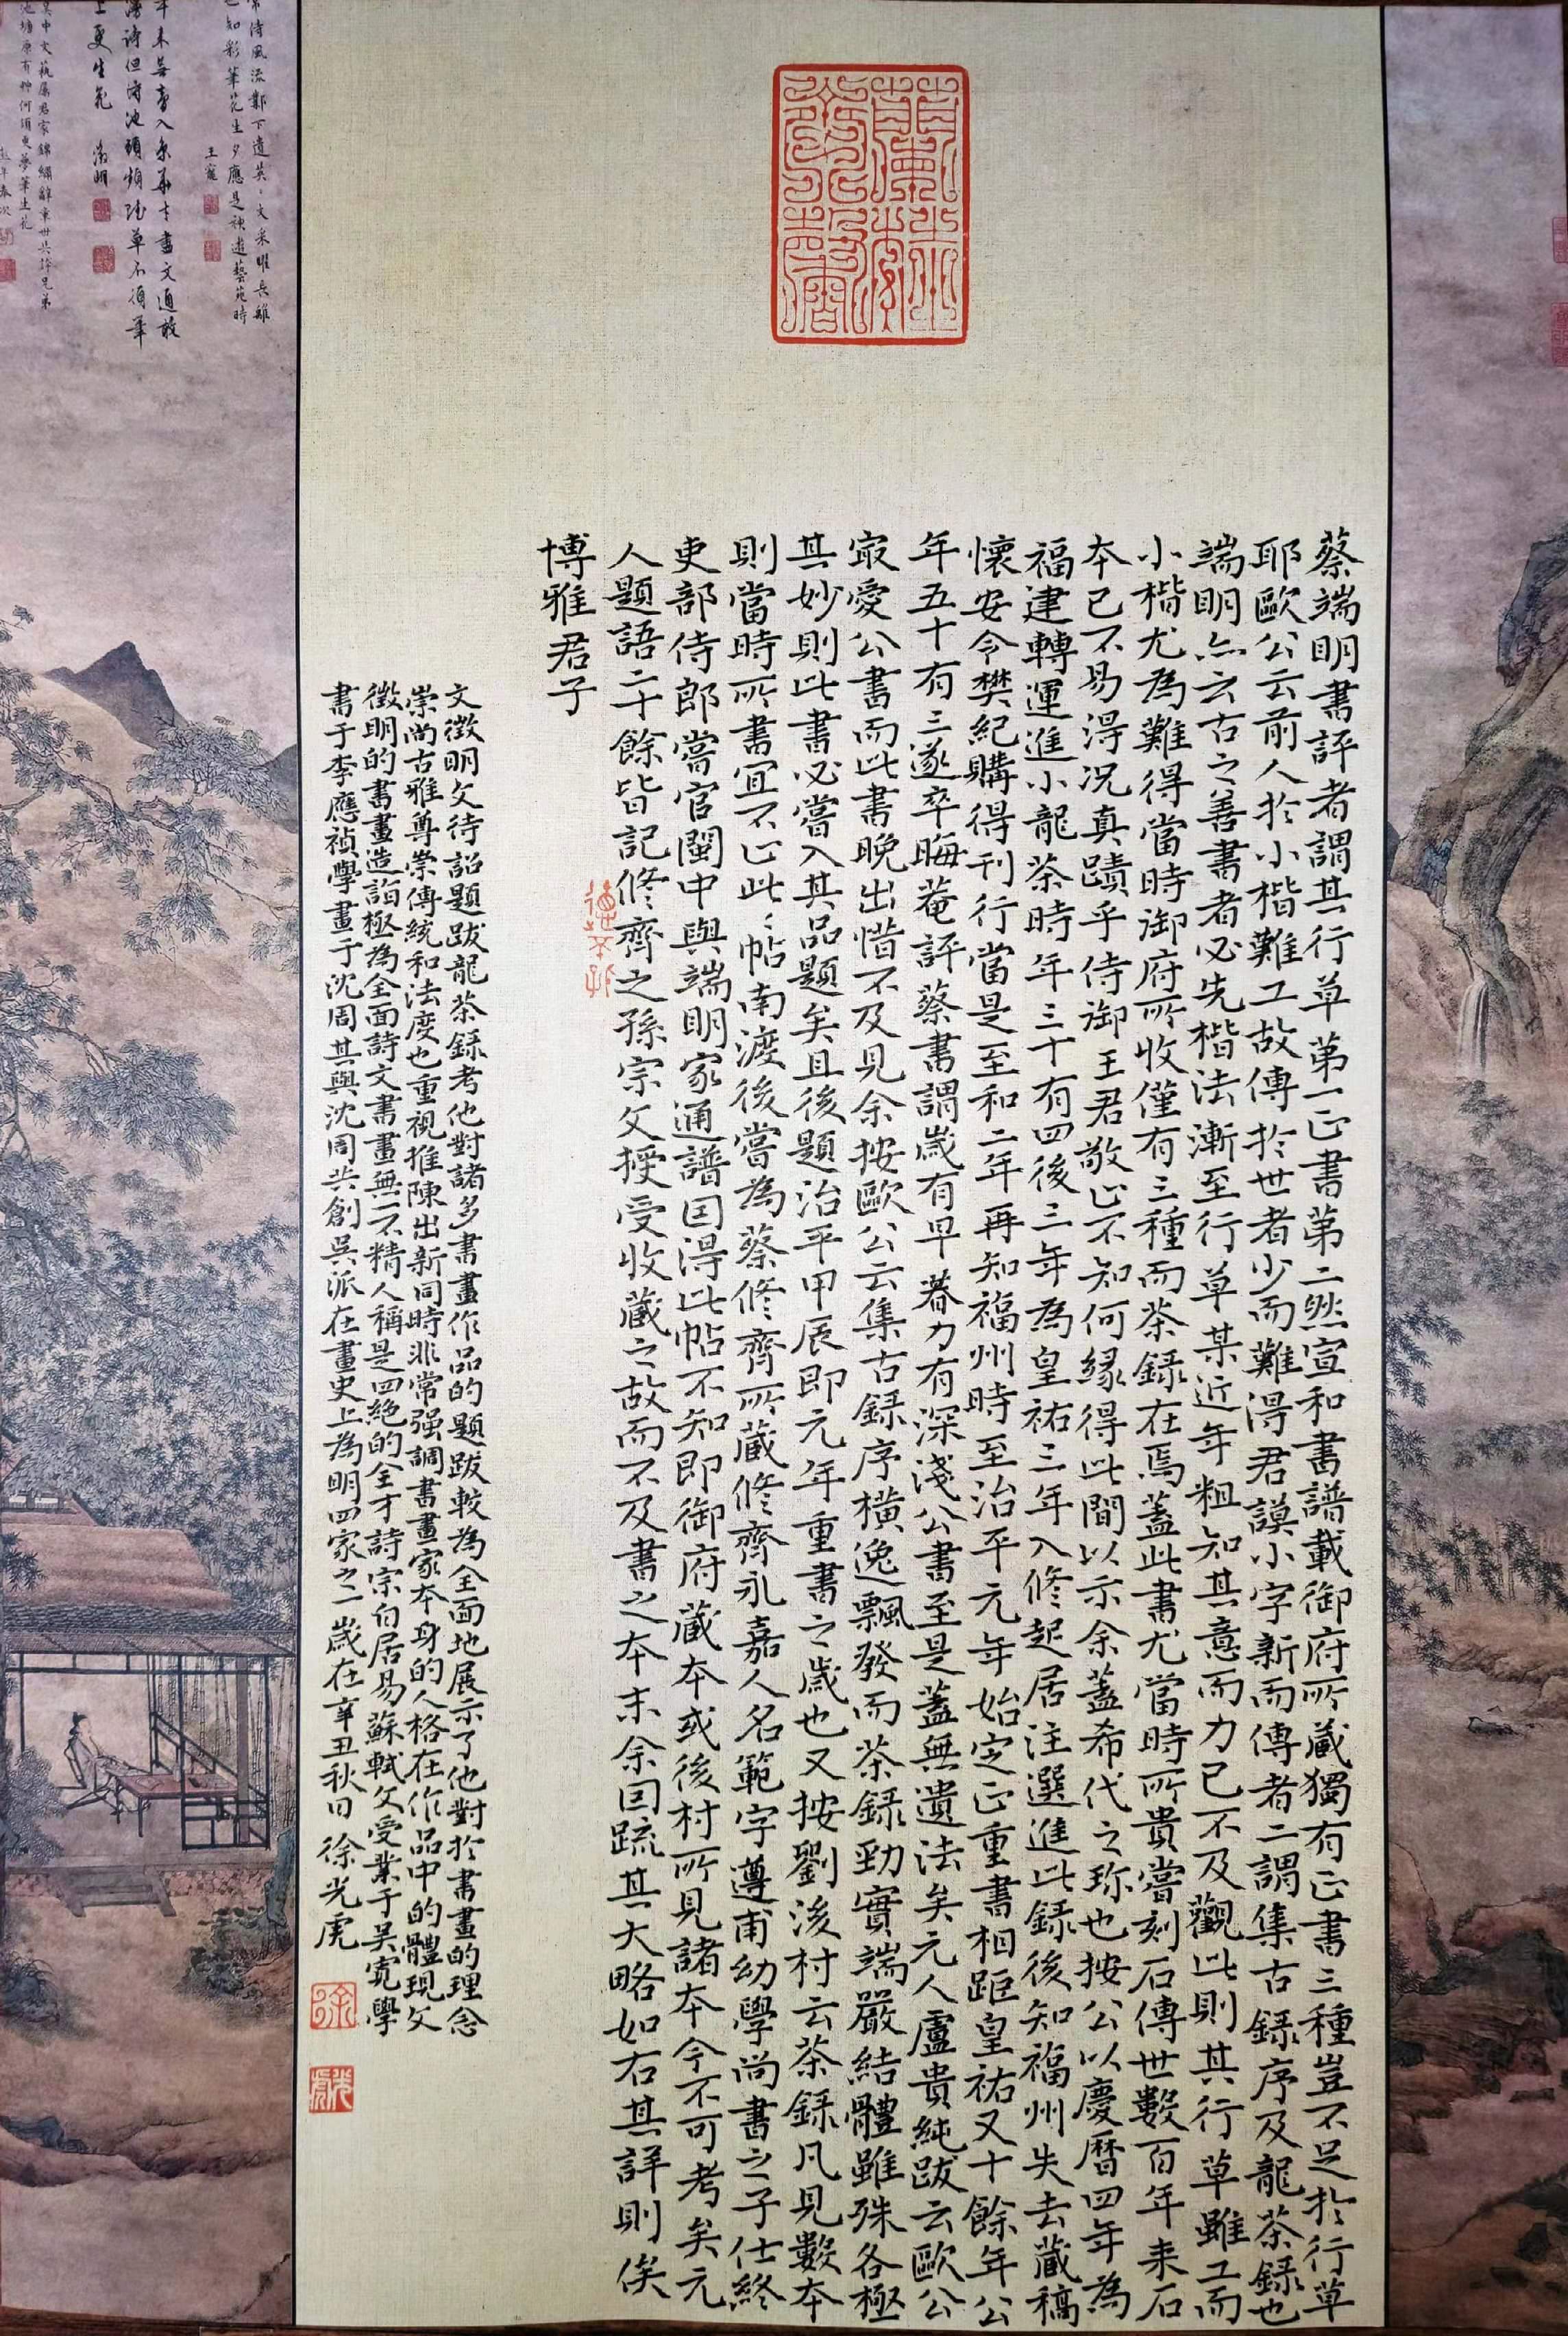 蔡端明書評者謂其行草第一正書第二然宣和書譜載御府所藏獨有正書三種豈不足於行草
耶歐公云前人於小楷難工故傳於世者少而難得君謨小字新而傳者二謂集古錄序及龍茶錄也
端明亦云古之善書者必先楷法漸至行草某近年粗知其意而力已不及觀此則其行草雖工而
小楷尤為難得當時御府所收僅有三種而茶錄在焉蓋此書尤當時所貴嘗刻石傳世數百年来石
本已不易得况真蹟乎侍御王君敬止不知何緣得此間以示余蓋希代之珎也按公以慶曆四年為
福建轉運進小龍茶時年三十有四後三年為皇祐三年入修起居注選進此錄後知福州失去藏稿
懷安令樊紀購得刊行當是至和二年再知福州時至治平元年始定正重書相距皇祐又十餘年公
年五十有三遂卒晦菴評蔡書謂歲有早暮力有深淺公書至是蓋無遺法矣元人盧貴純跋云歐公
冣愛公書而此書晚出惜不及見余按歐公云集古錄序橫逸飄發而茶錄勁實端嚴結體雖殊各極
其妙則此書必嘗入其品題矣且後題治平甲辰即元年重書之歲也又按劉後村云茶錄凡見數本
則當時所書冝不止此〻帖南渡後嘗為蔡修齊所藏修齊永嘉人名範字遵甫幼學尚書之子仕終
吏部侍郎嘗官閩中與端明家通譜囙得此帖不知即御府藏本或後村所見諸本今不可考矣元
人題語二十餘皆記修齊之孫宗文授受收藏之故而不及書之本末余囙疏其大略如右其詳則俟
博雅君子
文徵明文待詔題跋龍茶錄考他對諸多書畫作品的題跋較為全面地展示了他對於書畫的理念
崇尚古雅尊崇傳統和法度也重視推陳出新同時非常强調書畫家本身的人格在作品中的體現文
徵明的書畫造詣極為全面詩文書畫無一不精人稱是四絕的全才詩宗白居易蘇軾文受業于吴寬學
書于李應禎學畫于沈周其與沈周共創吴派在畫史上為明四家之一歲在辛丑秋日徐光虎
王寵
徵明